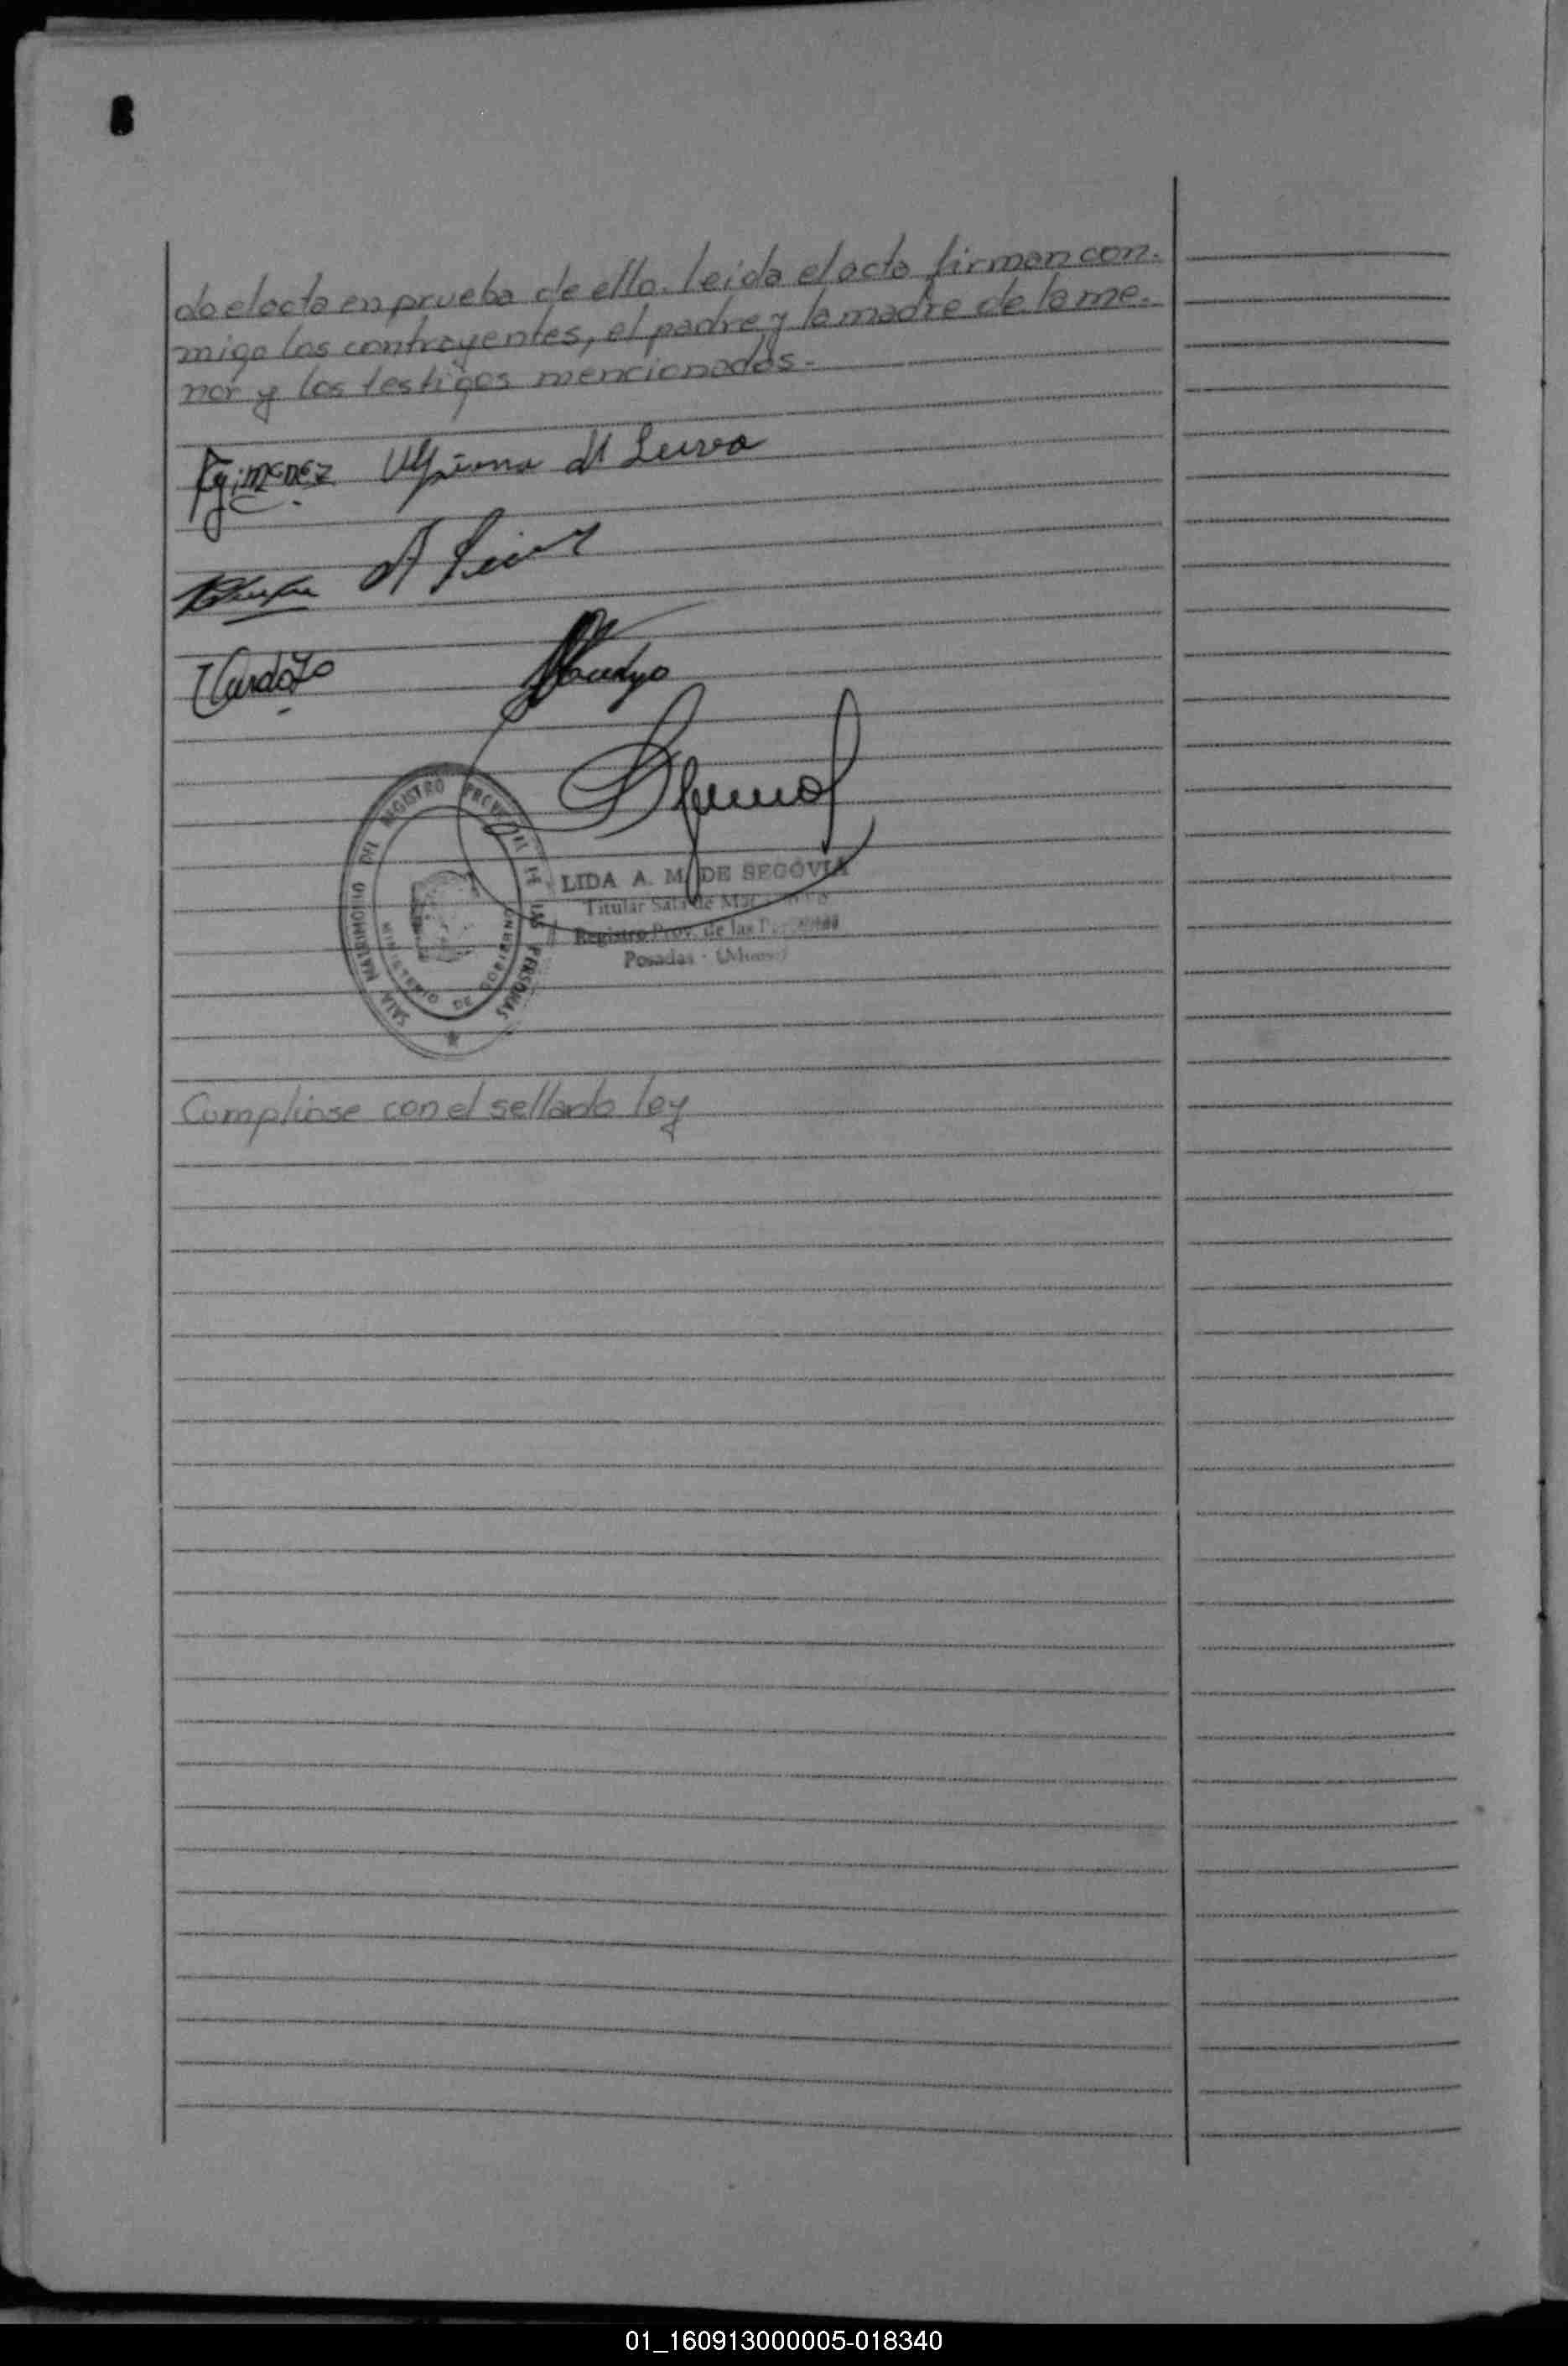 8
do el acta en prueba de ello. leida el acta firman con.
migo los contrayentes, el padre y la madre de la me.
nor y los testigos mencionados.-
Gimenez de Leiva
Cardozo
SALA MATRIMONIO DEL REGISTRO PROVINCIAL DE LAS PERSONAS
MINISTERIO DE GOBIERNO
LIDA A. M. DE SEGOVIA
Titular Sala de
Registro Prov. de las
Posadas -
Cumpliose con el sellado ley
01_160913000005-018340